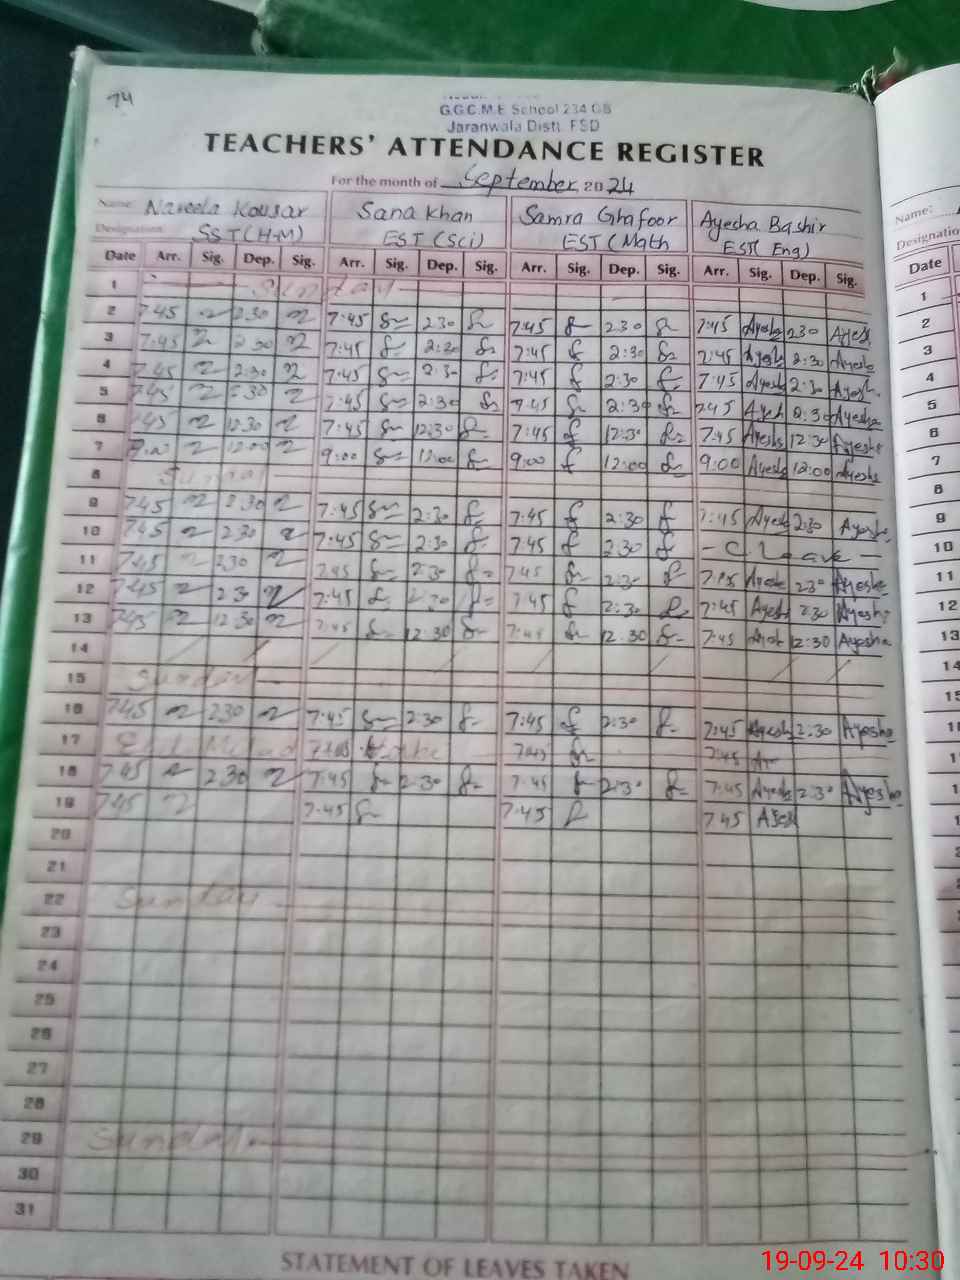 74
G.G.C.M.E School 234 GB
Jaranwala Distt. FSD
TEACHERS' ATTENDANCE REGISTER
For the month of September 2024
Name: Nabeela Kousar Sana Khan Samra Ghafoor Ayesha Bashir Name:
Designation: SST(H-M) EST (Sci) EST (Math EST( Eng) Designatio
Date Arr. Sig. Dep. Sig. Arr. Sig. Dep. Sig. Arr. Sig. Dep. Sig. Arr. Sig. Dep. Sig. Date
1 Sunday 1
2 7:45 2:30 7:45 2:30 7:45 2:30 7:45 Ayesha 2:30 Ayesha 2
3 7:45 2:30 7:45 2:30 7:45 2:30 7:45 Ayesha 2:30 Ayesha 3
4 7:45 2:30 7:45 2:30 7:45 2:30 7:45 Ayesha 2:30 Ayesha 4
5 7:45 2:30 7:45 2:30 7:45 2:30 7:45 Ayesha 2:30 Ayesha 5
6 7:45 12:30 7:45 12:30 7:45 12:30 7:45 Ayesha 12:30 Ayesha 6
7 9:00 12:00 9:00 12:00 9:00 12:00 9:00 Ayesha 12:00 Ayesha 7
8 Sunday 8
9 7:45 2:30 7:45 2:30 7:45 2:30 7:45 Ayesha 2:30 Ayesha 9
10 7:45 2:30 7:45 2:30 7:45 2:30 - C Leave - 10
11 7:45 2:30 7:45 2:30 7:45 2:30 7:45 Ayesha 2:30 Ayesha 11
12 7:45 2:30 7:45 2:30 7:45 2:30 7:45 Ayesha 2:30 Ayesha 12
13 7:45 12:30 7:45 12:30 7:45 12:30 7:45 Ayesha 12:30 Ayesha 13
14 14
15 Sunday 15
16 7:45 2:30 7:45 2:30 7:45 2:30 7:45 Ayesha 2:30 Ayesha
17 Eid Milad 7:45 7:45 7:45
18 7:45 2:30 7:45 2:30 7:45 2:30 7:45 Ayesha 2:30 Ayesha
19 7:45 7:45 7:45 7:45 Ayesha
20
21
22 Sunday
23
24
25
26
27
28
29 Sunday
30
31
STATEMENT OF LEAVES TAKEN
19-09-24 10:30